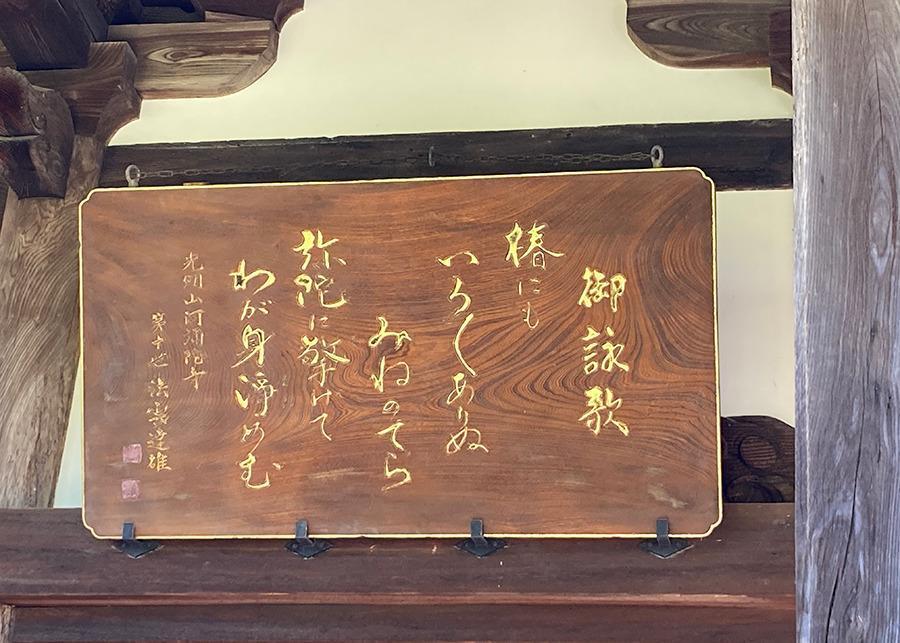 御詠歌
椿にも
いろ〱ありぬ
みねのてら
弥陀に擎けて
わが身浄めむ
光明山阿弥陀寺
第十世 法誉達雄